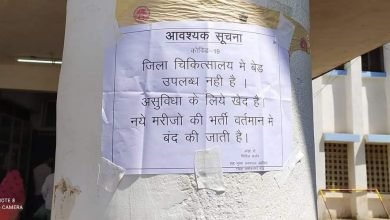 आवश्यक सूचना
कोविड-19
जिला चिकित्सालय मे बेड
उपलब्ध नही है ।
असुविधा के लिये खेद है।
नये मरीजो की भर्ती वर्तमान मे
बंद की जाती है।